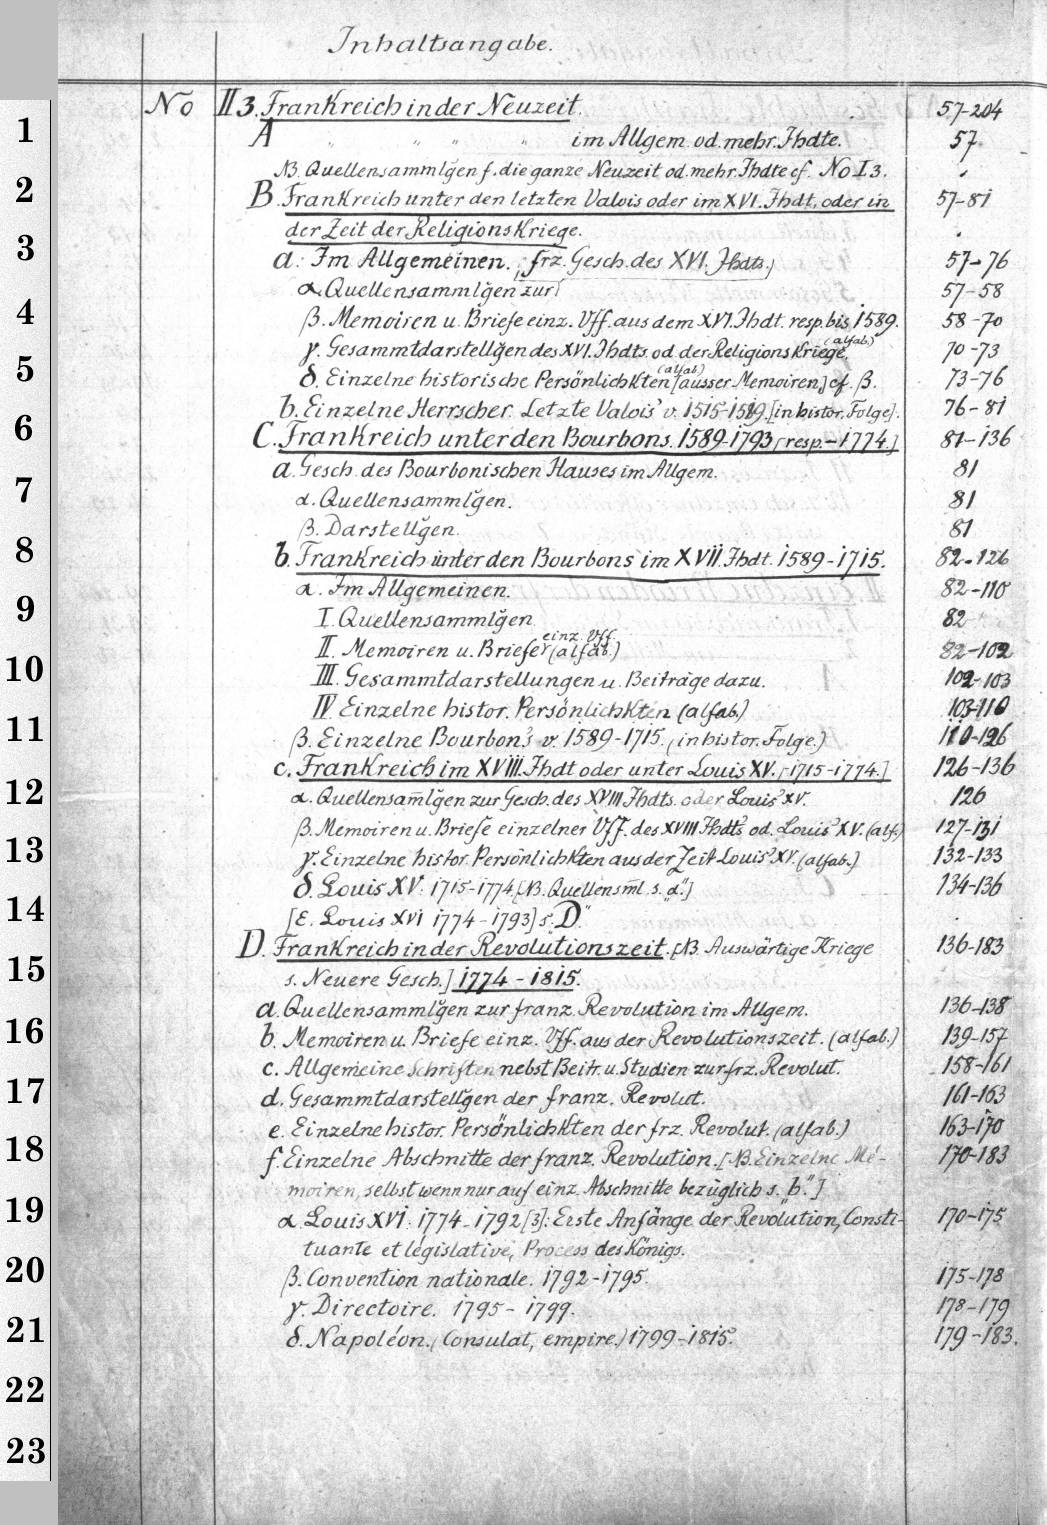 Inhaltsangabe.
No II 3. Frankreich in der Neuzeit. 57-204
1 A " " " " im Allgem. od. mehr. Jhdte. 57.
NB. Quellensammlgen f. die ganze Neuzeit od. mehr. Jhdte cf. No I 3.
2 B. Frankreich unter den letzten Valois oder im XVI. Jhdt. oder in 57-81
der Zeit der Religionskriege.
3 a. Im Allgemeinen. frz. Gesch. des XVI. Jhdts.) 57-76
α. Quellensammlgen zur 57-58
4 β. Memoiren u. Briefe einz. Vff. aus dem XVI. Jhdt. resp. bis 1589. 58-70
γ. Gesammtdarstellgen des XVI. Jhdts. od. der Religionskriege. (alfab.) 70-73
5 δ. Einzelne historische Persönlichkten (alfab.) [ausser Memoiren,] cf. β. 73-76
b. Einzelne Herrscher. Letzte Valois' v. 1515-1589. [in histor. Folge]. 76-81
6 C. Frankreich unter den Bourbons. 1589-1793 [resp. -1774.] 81-136
a. Gesch. des Bourbonischen Hauses im Allgem. 81
7 α. Quellensammlgen. 81
β. Darstellgen. 81
8 b. Frankreich unter den Bourbons im XVII. Jhdt. 1589-1715. 82-126
α. Im Allgemeinen. 82-110
9 I. Quellensammlgen 82
II. Memoiren u. Briefe einz. Vff. (alfab.) 82-102
10 III. Gesammtdarstellungen u. Beiträge dazu. 102-103
IV. Einzelne histor. Persönlichkten (alfab.) 103-110
11 β. Einzelne Bourbons v. 1589-1715. (in histor. Folge.) 110-126
c. Frankreich im XVIII. Jhdt oder unter Louis XV. [1715-1774.] 126-136
12 α. Quellensam̅lgen zur Gesch. des XVIII Jhdts. oder Louis' XV. 126
β. Memoiren u. Briefe einzelner Vff. des XVIII Jhdts od. Louis' XV. (alf.) 127-131
13 γ. Einzelne histor. Persönlichkten aus der Zeit Louis' XV. (alfab.] 132-133
δ. Louis XV. 1715-1774. [NB. Quellensml. s. „α".] 134-136
14 [ε. Louis XVI 1774-1793] s. „D."
D. Frankreich in der Revolutionszeit. [NB. Auswärtige Kriege 136-183
15 s. Neuere Gesch.] 1774-1815.
a. Quellensammlgen zur franz. Revolution im Allgem. 136-138
16 b. Memoiren u. Briefe einz. Vff. aus der Revolutionszeit. (alfab.) 139-157
c. Allgemeine Schriften nebst Beitr. u. Studien zur frz. Revolut. 158-161
17 d. Gesammtdarstellgen der franz. Revolut. 161-163
e. Einzelne histor. Persönlichkten der frz. Revolut. (alfab.) 163-170
18 f. Einzelne Abschnitte der franz. Revolution. [NB. Einzelne Mé- 170-183
moiren, selbst wenn nur auf einz. Abschnitte bezüglich s. „b."]
19 α. Louis XVI. 1774-1792 [3]: Erste Anfänge der Revolution, Consti- 170-175
tuante et législative, Process des Königs.
20 β. Convention nationale. 1792-1795. 175-178
γ. Directoire. 1795-1799. 178-179
21 δ. Napoléon. (Consulat, empire.) 1799-1815. 179-183.
22
23